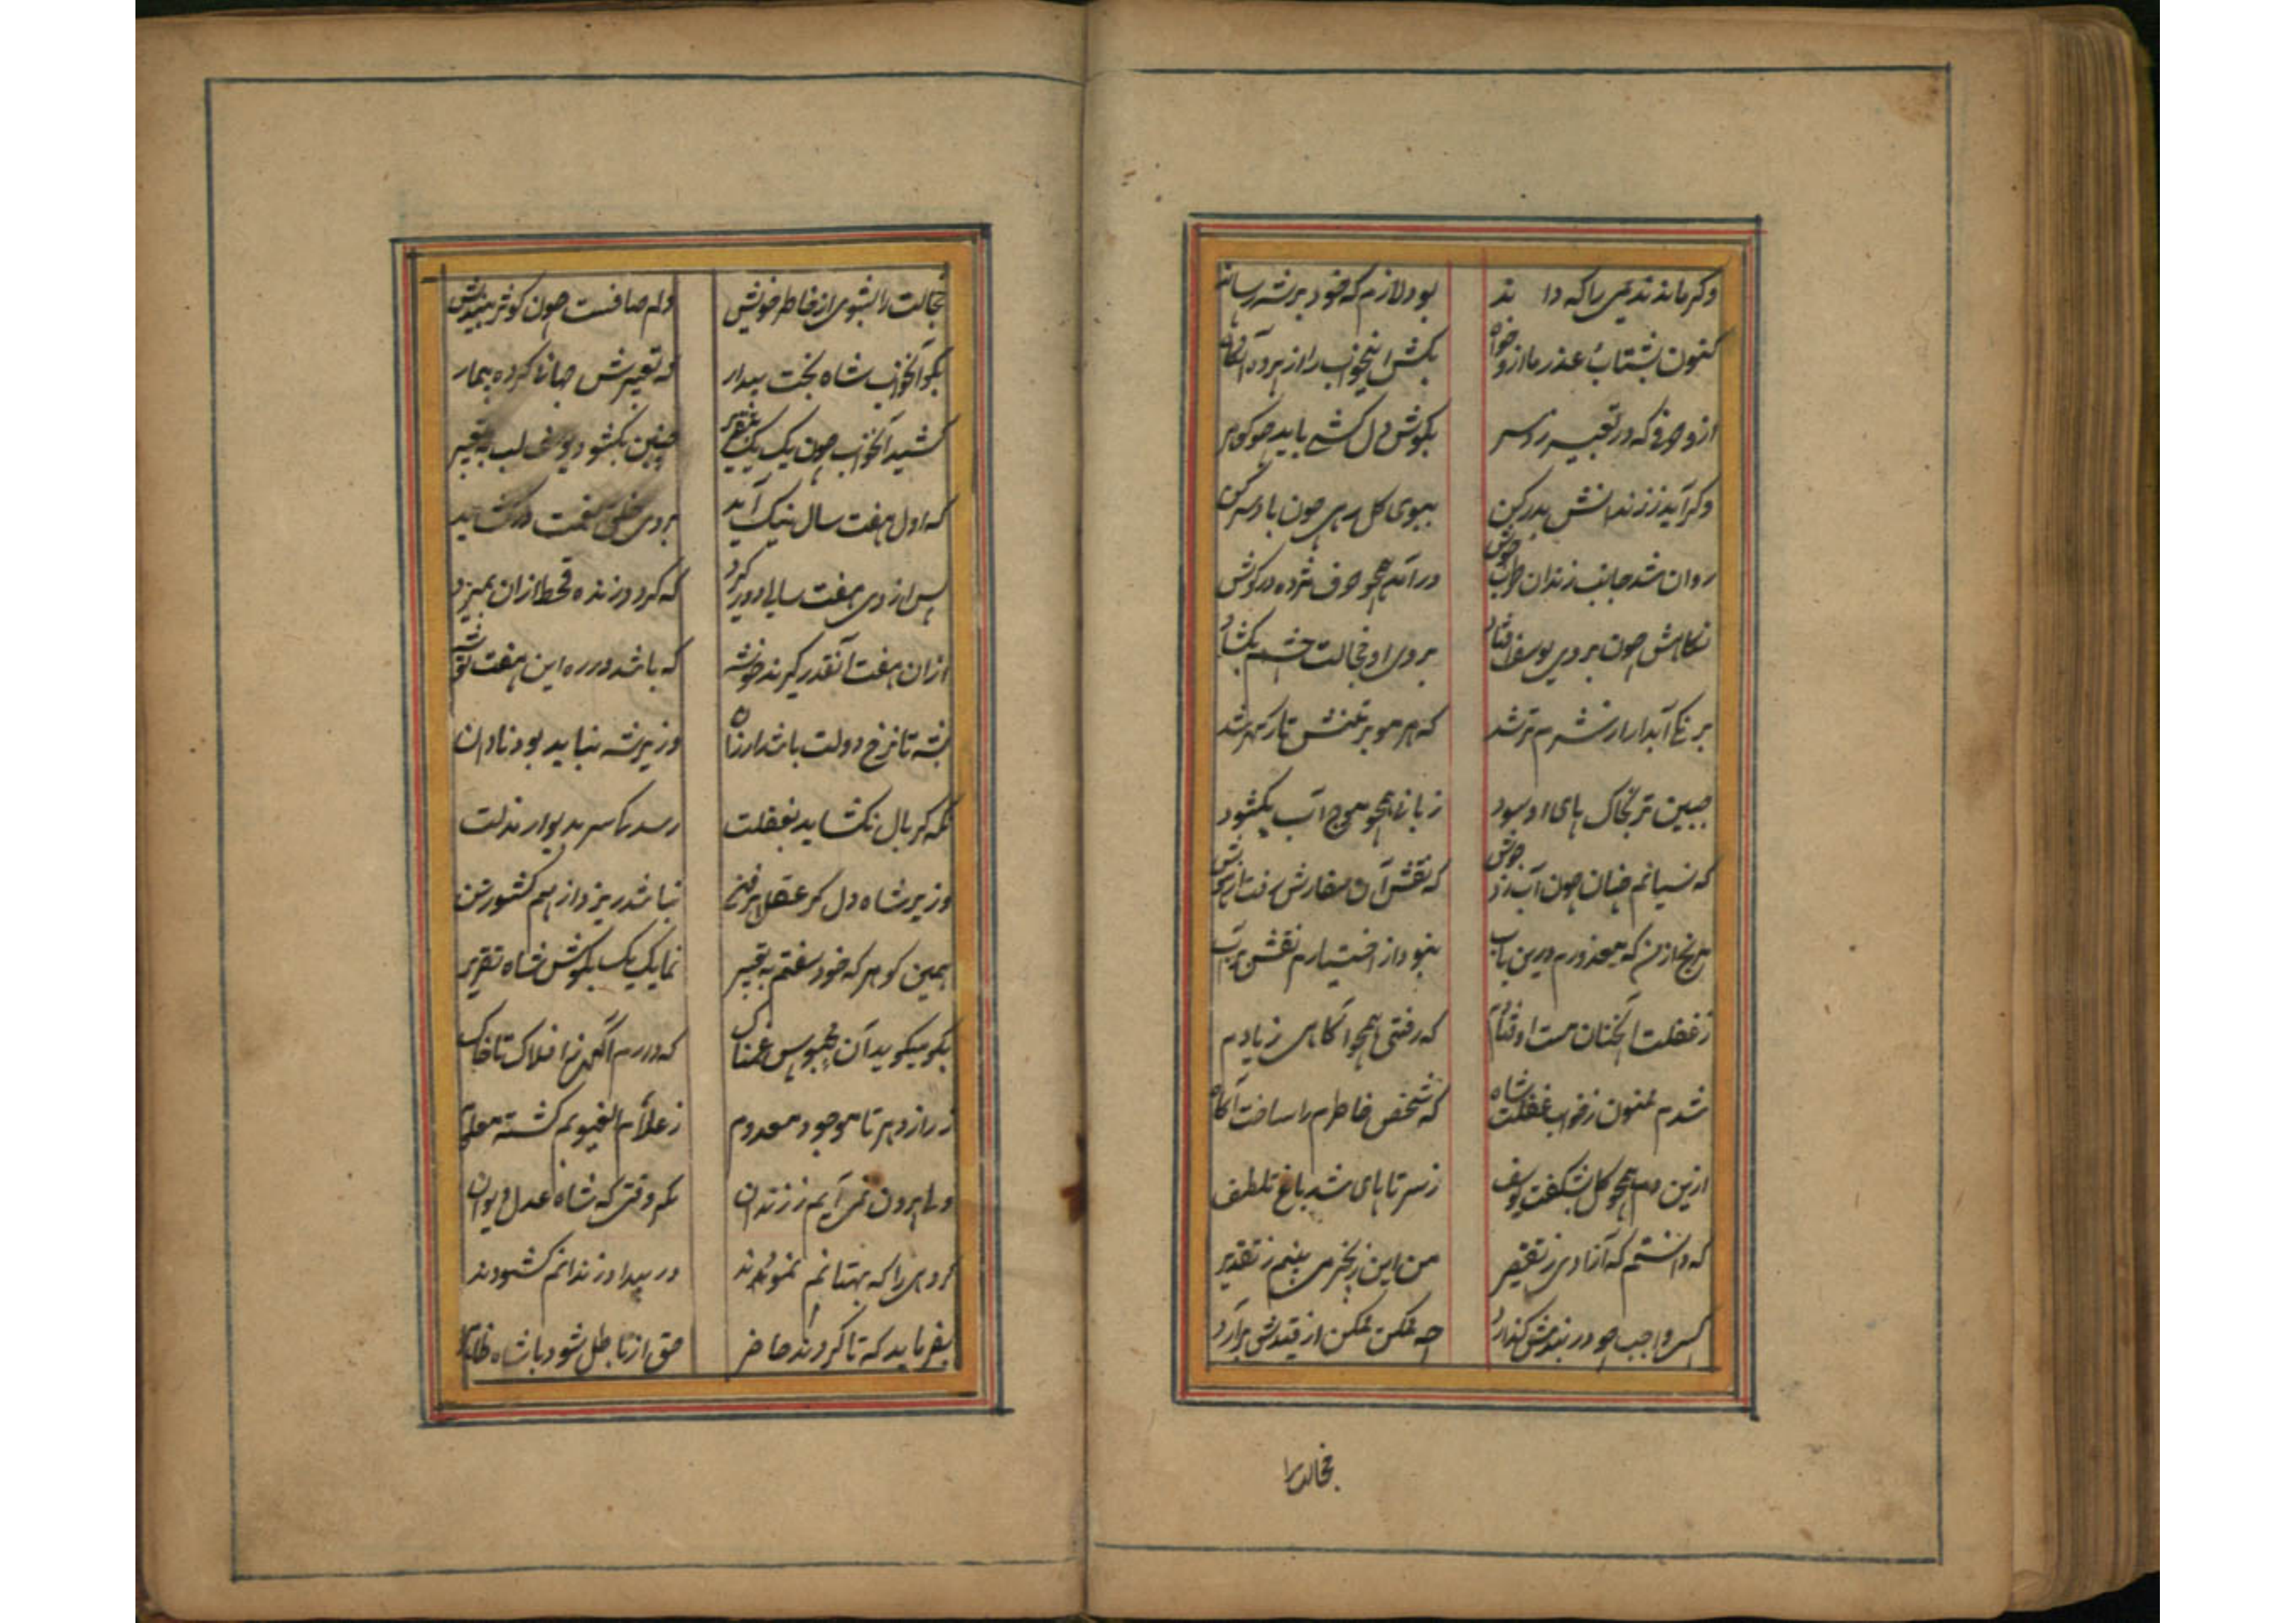 وکر ماند ندیمی را که داند بود لازم که خود بر شه رساند
کنون بشتاب عذر ما ازو خواه بکش اینخواب را از پرده آنکاه
ازو حرفی که در تعبیر زد سر بکوش دل کشی باید چو کوهر
وکر آید ز زندانش بدر کن ببوی کل رهی چون باد سر کن
روان شد جانب زندان در آمد همچو حرف مژده در کوش
نکاهش چون بروی یوسف افتاد بروی او خجالت چشم بکشاد
برنک آبدار از شرم تر شد که هر مو بر تنش تار کهر شد
جبین تر بخاک پای او سود زبانی همچو موج آب بکشود
که نسیانم چنان چون آب زد جوش که نقش آن سفارش رفت از
مرنج از من که معذورم درین باب نبود از اختیارم نقش بر آب
ز غفلت آنچنان مست اوفتادم که رفتی همچو آکاهی ز یادم
شدم ممنون ز خواب غفلت شاه که شخص خاطرم را ساخت آکاه
ازین دم همچو کل بشکفت یوسف ز سر تا پای شد باغ تلطف
که دانستم که آزادی ز تقصیر من این زنجیر می بینم ز تقدیر
کسی واجب چو در بندش کذارد چه ممکن ممکن از قیدش برآرد
خجالت را
خجالت را بشوی از خاطر خویش دلم صافست چون کوثر میندیش
بکو آنخواب شاه بخت بیدار که تعبیرش جهانرا کرده بیمار
کشید آنخواب چون یک یک بتقریر چنین بکشود یوسف لب به تعبیر
که اول هفت سال نیک آید بروی خلق در کشاید
پس از وی هفت سالی دور کیرد که کرد و زنده قحط از آن بمیرد
از آن هفت آنقدر کیرند خوشه که باشد در ره این هفت توشه
بشه تا نرخ دولت باشد ارزان وزیر شه نباید بود نادان
نکه کر بال نکشاید بغفلت رسد سر بدیوار مذلت
وزیر شاه دل کر عقل پر فن نباشد ریزد از هم کشور تن
همین کوهر که خود سفتم به تعبیر نما یک یک بکوش شاه تقریر
بکو میکوید آن محبوس غمناک که دارم آکهی ز افلاک تا خاک
ز راز دهر تا موجود معدوم ز علام الغیوبم کشته معلوم
ولی بیرون نمی آیم ز زندان مکر وقتی که شاه عدل دیوان
کروهی را که بهتانم نمودند در بیداد زندانم کشودند
بفرماید که تا کردند حاضر حق از باطل شود با شاه ظاهر